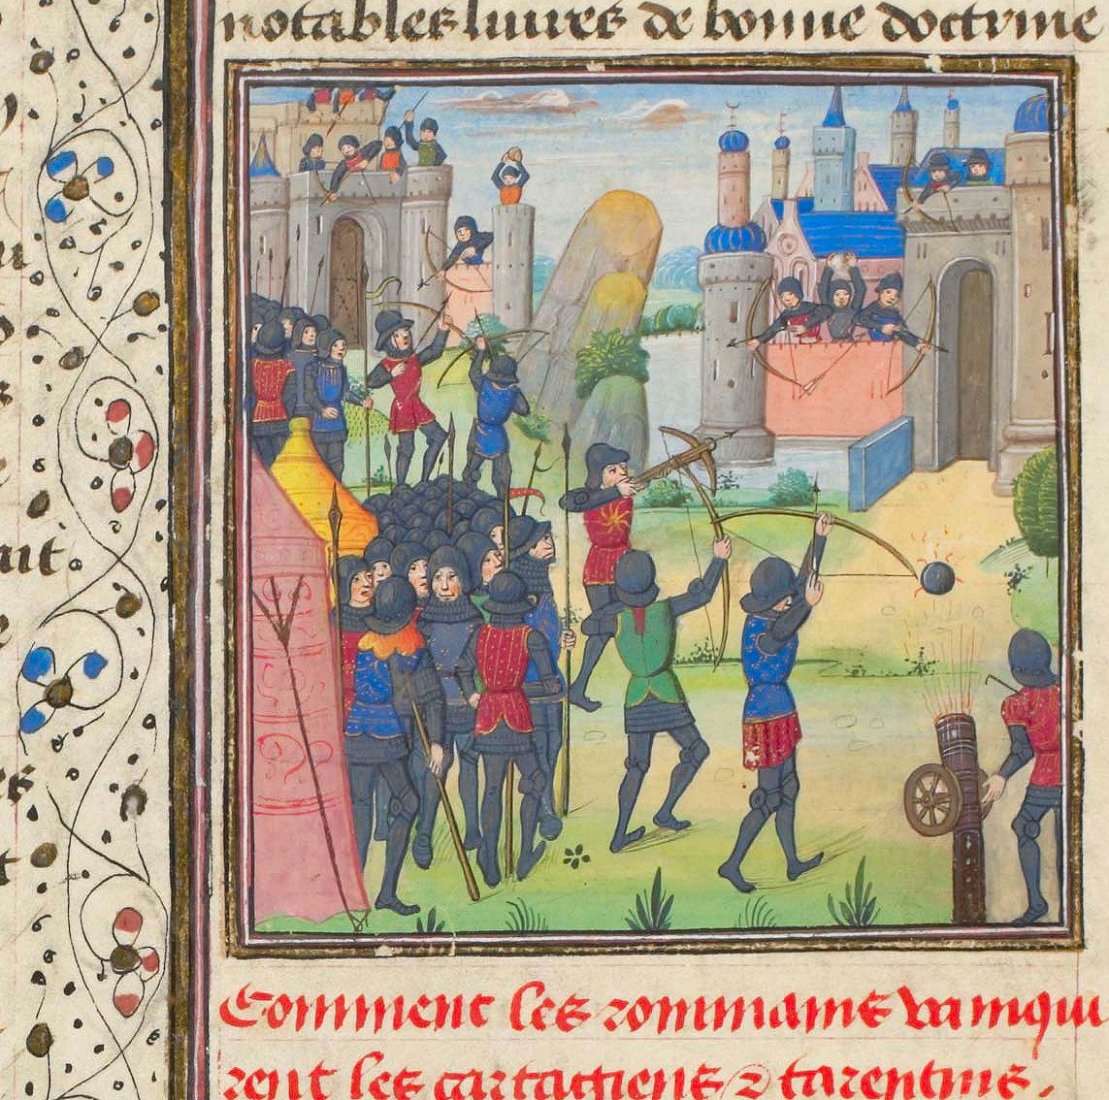 notables liures de bonne doctrine
Comment les rommains vainqui
rent les cartagiens ⁊ tarentins.